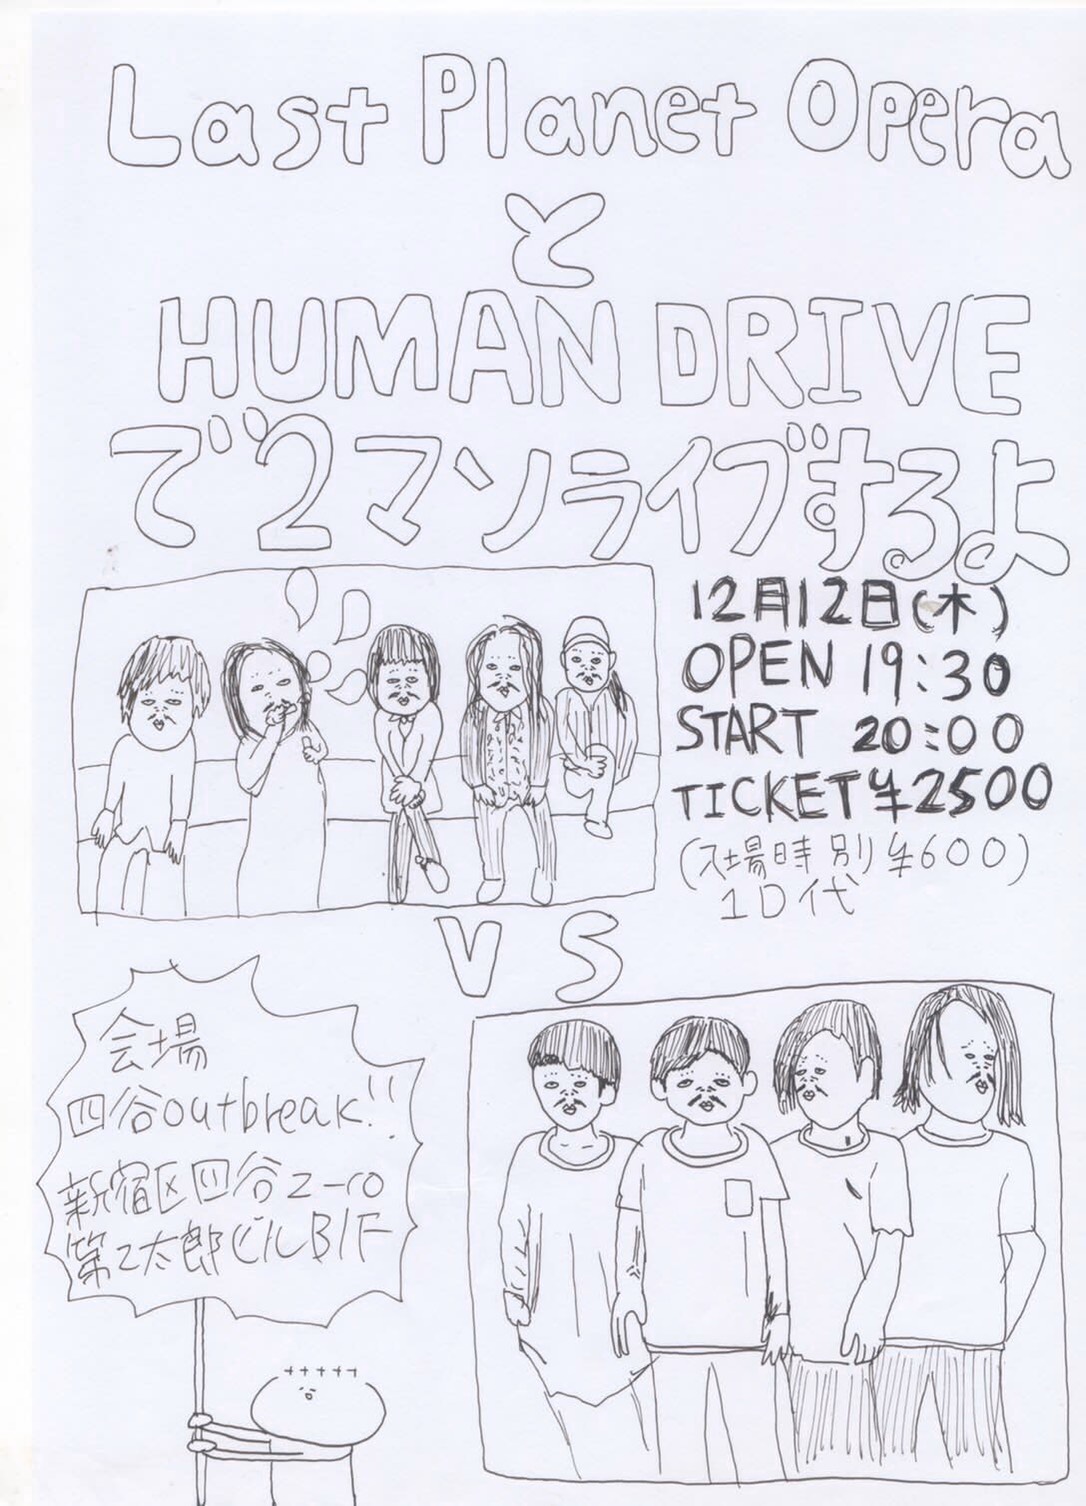 Last Planet Opera
と
HUMAN DRIVE
で2マンライブするよ
12月12日(木)
OPEN 19:30
START 20:00
TICKET ¥2500
(入場時別 ¥600)
1D代
VS
会場
四谷outbreak!!
新宿区四谷2-10
第2太郎ビルB1F